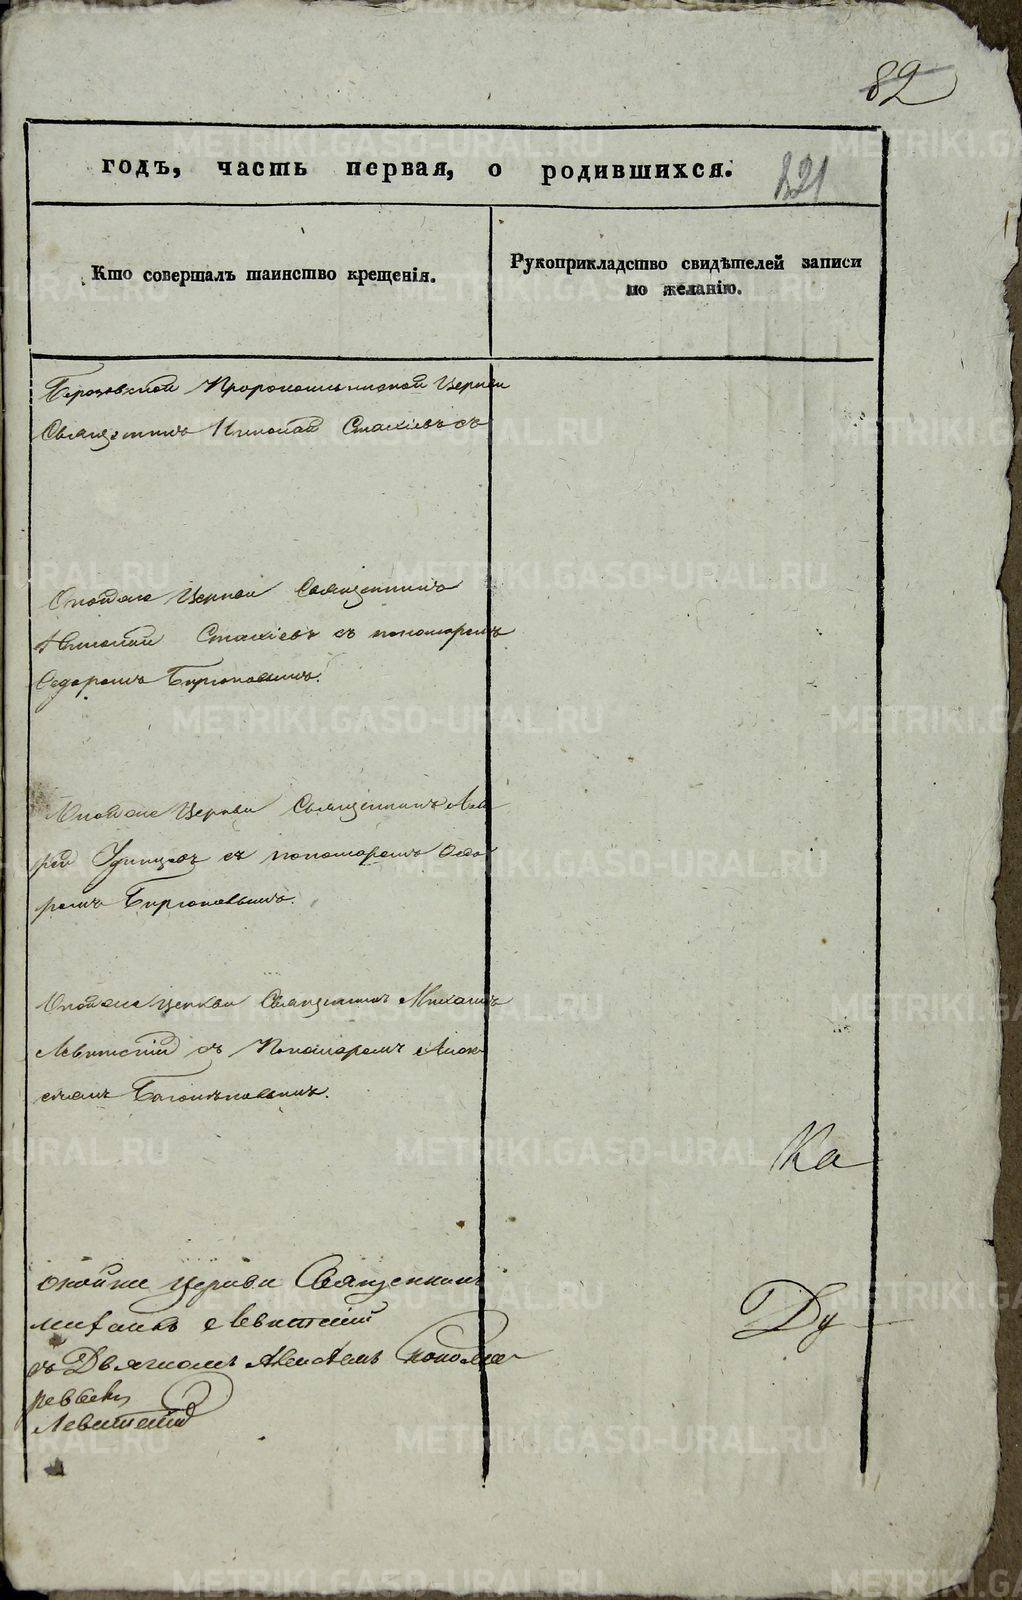 82
годъ, часть первая, о родившихся.
221
Кто совершалъ таинство крещенія.
Рукоприкладство свидѣтелей записи
по желанію.
Березовской Пророкоильинской Церкви
Священникъ Николай Стахіевъ съ
Тойже Церкви Священникъ
Николай Стахіевъ съ пономаремъ
Ѳедоромъ Бирюковымъ.
Тойже Церкви Священникъ
съ пономаремъ Ѳедо
ромъ Бирюковымъ.
Тойже Церкви Священникъ Михаилъ
Левитскій съ Пономаремъ Алек
Тойже Церкви Священникъ
Михаилъ Левитскій
съ Дьячкомъ
Левитскій
Ка
Ду
METRIKI.GASO-URAL.RU